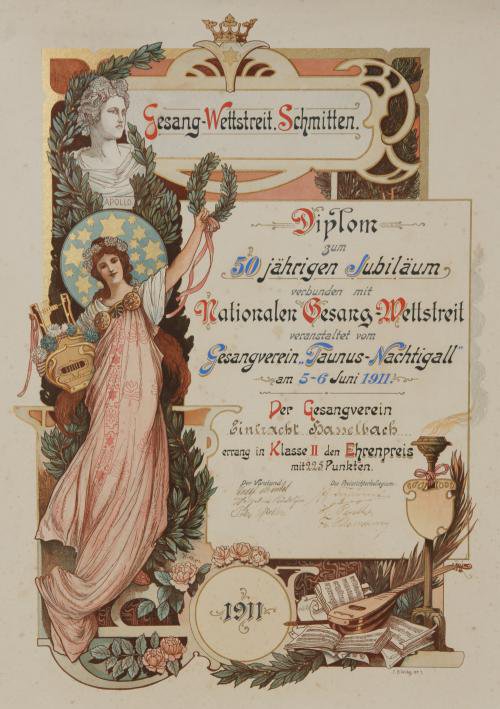 Gesang-Wettstreit. Schmitten.
APOLLO
Diplom
zum
50 jährigen Jubiläum
verbunden mit
Nationalen Gesang-Wettstreit
veranstaltet vom
Gesangverein „Taunus-Nachtigall"
am 5-6 Juni 1911.
Der Gesangverein
Eintracht Hasselbach
errang in Klasse II den Ehrenpreis
mit 225 Punkten.
Der Vorstand Das Preisrichterkollegium
1911